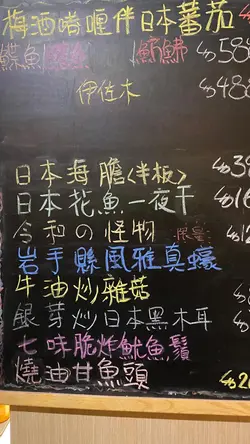 梅酒啫喱伴日本蕃茄
鰈魚 魴鮄 $58
伊佐木 $488
日本海膽〈半板〉 $3
日本花魚一夜干 $16
令和の怪物 限量:
岩手縣風雅真蠔
牛油炒雜菇
銀芽炒日本黑木耳
七味脆炸魷魚鬚
燒油甘魚頭 $2